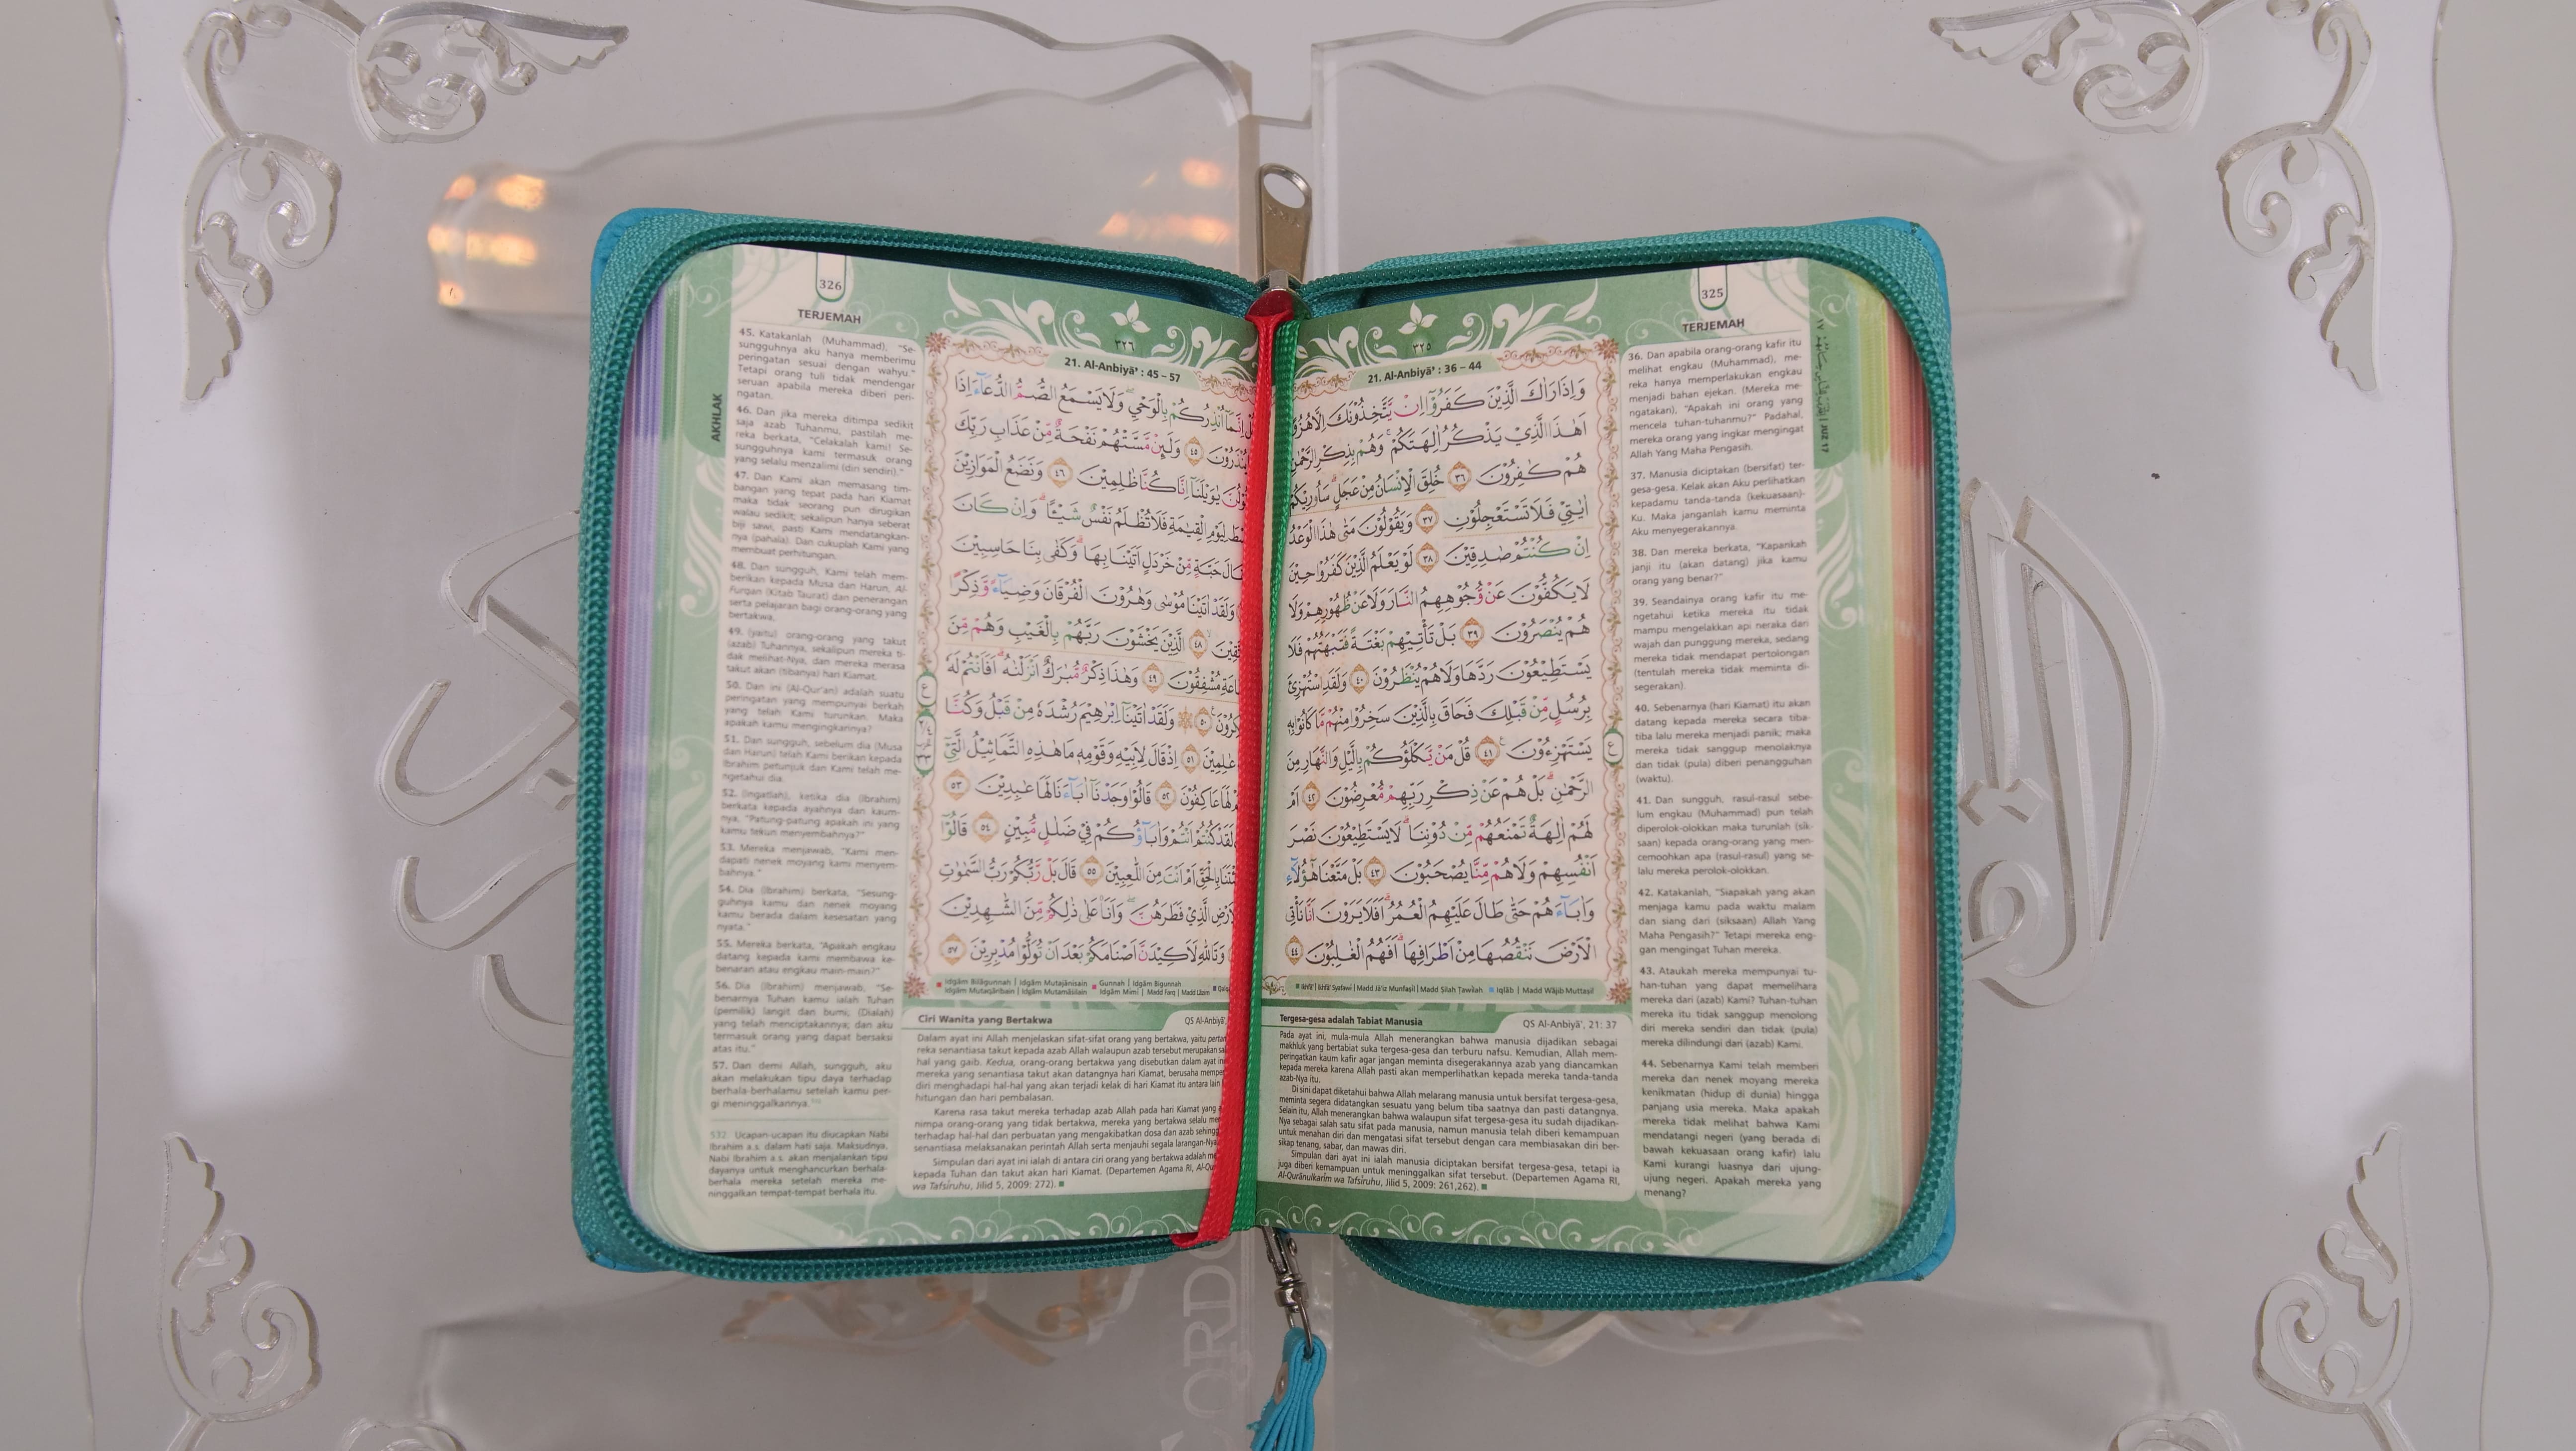 325
TERJEMAH
٣٢٥
21. Al-Anbiyā' : 36 – 44
وَاِذَا رَاٰكَ الَّذِيْنَ كَفَرُوْٓا اِنْ يَّتَّخِذُوْنَكَ اِلَّا هُزُوًا
اَهٰذَا الَّذِيْ يَذْكُرُ اٰلِهَتَكُمْ ۚ وَهُمْ بِذِكْرِ الرَّحْمٰنِ
هُمْ كٰفِرُوْنَ ٣٦ خُلِقَ الْاِنْسَانُ مِنْ عَجَلٍ ۗ سَاُورِيْكُمْ
اٰيٰتِيْ فَلَا تَسْتَعْجِلُوْنِ ٣٧ وَيَقُوْلُوْنَ مَتٰى هٰذَا الْوَعْدُ
اِنْ كُنْتُمْ صٰدِقِيْنَ ٣٨ لَوْ يَعْلَمُ الَّذِيْنَ كَفَرُوْا حِيْنَ
لَا يَكُفُّوْنَ عَنْ وُّجُوْهِهِمُ النَّارَ وَلَا عَنْ ظُهُوْرِهِمْ وَلَا
هُمْ يُنْصَرُوْنَ ٣٩ بَلْ تَأْتِيْهِمْ بَغْتَةً فَتَبْهَتُهُمْ فَلَا
يَسْتَطِيْعُوْنَ رَدَّهَا وَلَا هُمْ يُنْظَرُوْنَ ٤٠ وَلَقَدِ اسْتُهْزِئَ
بِرُسُلٍ مِّنْ قَبْلِكَ فَحَاقَ بِالَّذِيْنَ سَخِرُوْا مِنْهُمْ مَّا كَانُوْا بِهٖ
يَسْتَهْزِءُوْنَ ٤١ قُلْ مَنْ يَّكْلَؤُكُمْ بِالَّيْلِ وَالنَّهَارِ مِنَ
الرَّحْمٰنِ ۗ بَلْ هُمْ عَنْ ذِكْرِ رَبِّهِمْ مُّعْرِضُوْنَ ٤٢ اَمْ
لَهُمْ اٰلِهَةٌ تَمْنَعُهُمْ مِّنْ دُوْنِنَا ۗ لَا يَسْتَطِيْعُوْنَ نَصْرَ
اَنْفُسِهِمْ وَلَا هُمْ مِّنَّا يُصْحَبُوْنَ ٤٣ بَلْ مَتَّعْنَا هٰٓؤُلَاۤءِ
وَاٰبَاۤءَهُمْ حَتّٰى طَالَ عَلَيْهِمُ الْعُمُرُ ۗ اَفَلَا يَرَوْنَ اَنَّا نَأْتِى
الْاَرْضَ نَنْقُصُهَا مِنْ اَطْرَافِهَا ۗ اَفَهُمُ الْغٰلِبُوْنَ ٤٤
Ikhfā' | Ikhfā' Syafawi | Madd Jā'iz Munfaṣil | Madd Ṣilah Ṭawīlah Iqlāb | Madd Wājib Muttaṣil
36. Dan apabila orang-orang kafir itu
melihat engkau (Muhammad), me-
reka hanya memperlakukan engkau
menjadi bahan ejekan. (Mereka me-
ngatakan), “Apakah ini orang yang
mencela tuhan-tuhanmu?” Padahal,
mereka orang yang ingkar mengingat
Allah Yang Maha Pengasih.
37. Manusia diciptakan (bersifat) ter-
gesa-gesa. Kelak akan Aku perlihatkan
kepadamu tanda-tanda (kekuasaan)-
Ku. Maka janganlah kamu meminta
Aku menyegerakannya.
38. Dan mereka berkata, “Kapankah
janji itu (akan datang) jika kamu
orang yang benar?”
39. Seandainya orang kafir itu me-
ngetahui ketika mereka itu tidak
mampu mengelakkan api neraka dari
wajah dan punggung mereka, sedang
mereka tidak mendapat pertolongan
(tentulah mereka tidak meminta di-
segerakan).
40. Sebenarnya (hari Kiamat) itu akan
datang kepada mereka secara tiba-
tiba lalu mereka menjadi panik; maka
mereka tidak sanggup menolaknya
dan tidak (pula) diberi penangguhan
(waktu).
41. Dan sungguh, rasul-rasul sebe-
lum engkau (Muhammad) pun telah
diperolok-olokkan maka turunlah (sik-
saan) kepada orang-orang yang men-
cemoohkan apa (rasul-rasul) yang se-
lalu mereka perolok-olokkan.
42. Katakanlah, “Siapakah yang akan
menjaga kamu pada waktu malam
dan siang dari (siksaan) Allah Yang
Maha Pengasih?” Tetapi mereka eng-
gan mengingat Tuhan mereka.
43. Ataukah mereka mempunyai tu-
han-tuhan yang dapat memelihara
mereka dari (azab) Kami? Tuhan-tuhan
mereka itu tidak sanggup menolong
diri mereka sendiri dan tidak (pula)
mereka dilindungi dari (azab) Kami.
44. Sebenarnya Kami telah memberi
mereka dan nenek moyang mereka
kenikmatan (hidup di dunia) hingga
panjang usia mereka. Maka apakah
mereka tidak melihat bahwa Kami
mendatangi negeri (yang berada di
bawah kekuasaan orang kafir) lalu
Kami kurangi luasnya dari ujung-
ujung negeri. Apakah mereka yang
menang?
Tergesa-gesa adalah Tabiat Manusia
QS Al-Anbiyā', 21: 37
Pada ayat ini, mula-mula Allah menerangkan bahwa manusia dijadikan sebagai
makhluk yang bertabiat suka tergesa-gesa dan terburu nafsu. Kemudian, Allah mem-
peringatkan kaum kafir agar jangan meminta disegerakannya azab yang diancamkan
kepada mereka karena Allah pasti akan memperlihatkan kepada mereka tanda-tanda
azab-Nya itu.
Di sini dapat diketahui bahwa Allah melarang manusia untuk bersifat tergesa-gesa,
meminta segera didatangkan sesuatu yang belum tiba saatnya dan pasti datangnya.
Selain itu, Allah menerangkan bahwa walaupun sifat tergesa-gesa itu sudah dijadikan-
Nya sebagai salah satu sifat pada manusia, namun manusia telah diberi kemampuan
untuk menahan diri dan mengatasi sifat tersebut dengan cara membiasakan diri ber-
sikap tenang, sabar, dan mawas diri.
Simpulan dari ayat ini ialah manusia diciptakan bersifat tergesa-gesa, tetapi ia
juga diberi kemampuan untuk meninggalkan sifat tersebut. (Departemen Agama RI,
Al-Qurānulkarim wa Tafsiruhu, Jilid 5, 2009: 261,262).
326
TERJEMAH
AKHLAK
٣٢٦
21. Al-Anbiyā' : 45 – 57
اِنَّمَآ اُنْذِرُكُمْ بِالْوَحْيِ ۖ وَلَا يَسْمَعُ الصُّمُّ الدُّعَاۤءَ اِذَا
٤٥ وَلَىِٕنْ مَّسَّتْهُمْ نَفْحَةٌ مِّنْ عَذَابِ رَبِّكَ
يٰوَيْلَنَآ اِنَّا كُنَّا ظٰلِمِيْنَ ٤٦ وَنَضَعُ الْمَوَازِيْنَ
لِيَوْمِ الْقِيٰمَةِ فَلَا تُظْلَمُ نَفْسٌ شَيْـًٔا ۗ وَاِنْ كَانَ
حَبَّةٍ مِّنْ خَرْدَلٍ اَتَيْنَا بِهَا ۗ وَكَفٰى بِنَا حَاسِبِيْنَ
وَلَقَدْ اٰتَيْنَا مُوْسٰى وَهٰرُوْنَ الْفُرْقَانَ وَضِيَاۤءً وَّذِكْرًا
٤٨ الَّذِيْنَ يَخْشَوْنَ رَبَّهُمْ بِالْغَيْبِ وَهُمْ مِّنَ
مُشْفِقُوْنَ ٤٩ وَهٰذَا ذِكْرٌ مُّبٰرَكٌ اَنْزَلْنٰهُ ۗ اَفَاَنْتُمْ لَهٗ
٥٠ وَلَقَدْ اٰتَيْنَآ اِبْرٰهِيْمَ رُشْدَهٗ مِنْ قَبْلُ وَكُنَّا
عٰلِمِيْنَ ٥١ اِذْ قَالَ لِاَبِيْهِ وَقَوْمِهٖ مَا هٰذِهِ التَّمَاثِيْلُ الَّتِيْٓ
لَهَا عَاكِفُوْنَ ٥٢ قَالُوْا وَجَدْنَآ اٰبَاۤءَنَا لَهَا عٰبِدِيْنَ ٥٣
لَقَدْ كُنْتُمْ اَنْتُمْ وَاٰبَاۤؤُكُمْ فِيْ ضَلٰلٍ مُّبِيْنٍ ٥٤ قَالُوْٓا
بِالْحَقِّ اَمْ اَنْتَ مِنَ اللّٰعِبِيْنَ ٥٥ قَالَ بَلْ رَّبُّكُمْ رَبُّ السَّمٰوٰتِ
الَّذِيْ فَطَرَهُنَّ ۖ وَاَنَا۠ عَلٰى ذٰلِكُمْ مِّنَ الشّٰهِدِيْنَ
وَتَاللّٰهِ لَاَكِيْدَنَّ اَصْنَامَكُمْ بَعْدَ اَنْ تُوَلُّوْا مُدْبِرِيْنَ ٥٧
Idgām Bilāgunnah | Idgām Mutajānisain Gunnah | Idgām Bigunnah
Idgām Mutaqāribain | Idgām Mutamāṡilain Idgām Mimi | Madd Farq | Madd Lāzim
45. Katakanlah (Muhammad), “Se-
sungguhnya aku hanya memberimu
peringatan sesuai dengan wahyu.”
Tetapi orang tuli tidak mendengar
seruan apabila mereka diberi peri-
ngatan.
46. Dan jika mereka ditimpa sedikit
saja azab Tuhanmu, pastilah me-
reka berkata, “Celakalah kami! Se-
sungguhnya kami termasuk orang
yang selalu menzalimi (diri sendiri).”
47. Dan Kami akan memasang tim-
bangan yang tepat pada hari Kiamat
maka tidak seorang pun dirugikan
walau sedikit; sekalipun hanya seberat
biji sawi, pasti Kami mendatangkan-
nya (pahala). Dan cukuplah Kami yang
membuat perhitungan.
48. Dan sungguh, Kami telah mem-
berikan kepada Musa dan Harun, Al-
Furqan (Kitab Taurat) dan penerangan
serta pelajaran bagi orang-orang yang
bertakwa,
49. (yaitu) orang-orang yang takut
(azab) Tuhannya, sekalipun mereka ti-
dak melihat-Nya, dan mereka merasa
takut akan (tibanya) hari Kiamat.
50. Dan ini (Al-Qur'an) adalah suatu
peringatan yang mempunyai berkah
yang telah Kami turunkan. Maka
apakah kamu mengingkarinya?
51. Dan sungguh, sebelum dia (Musa
dan Harun) telah Kami berikan kepada
Ibrahim petunjuk dan Kami telah me-
ngetahui dia.
52. (Ingatlah), ketika dia (Ibrahim)
berkata kepada ayahnya dan kaum-
nya, “Patung-patung apakah ini yang
kamu tekun menyembahnya?”
53. Mereka menjawab, “Kami men-
dapati nenek moyang kami menyem-
bahnya.”
54. Dia (Ibrahim) berkata, “Sesung-
guhnya kamu dan nenek moyang
kamu berada dalam kesesatan yang
nyata.”
55. Mereka berkata, “Apakah engkau
datang kepada kami membawa ke-
benaran atau engkau main-main?”
56. Dia (Ibrahim) menjawab, “Se-
benarnya Tuhan kamu ialah Tuhan
(pemilik) langit dan bumi; (Dialah)
yang telah menciptakannya; dan aku
termasuk orang yang dapat bersaksi
atas itu.”
57. Dan demi Allah, sungguh, aku
akan melakukan tipu daya terhadap
berhala-berhalamu setelah kamu per-
gi meninggalkannya.
532. Ucapan-ucapan itu diucapkan Nabi
Ibrahim a.s. dalam hati saja. Maksudnya,
Nabi Ibrahim a.s. akan menjalankan tipu
dayanya untuk menghancurkan berhala-
berhala mereka setelah mereka me-
ninggalkan tempat-tempat berhala itu.
Ciri Wanita yang Bertakwa
QS Al-Anbiyā',
Dalam ayat ini Allah menjelaskan sifat-sifat orang yang bertakwa, yaitu
reka senantiasa takut kepada azab Allah walaupun azab tersebut merupakan
hal yang gaib. Kedua, orang-orang bertakwa yang disebutkan dalam ayat
mereka yang senantiasa takut akan datangnya hari Kiamat, berusaha
diri menghadapi hal-hal yang akan terjadi kelak di hari Kiamat itu antara lain
hitungan dan hari pembalasan.
Karena rasa takut mereka terhadap azab Allah pada hari Kiamat yang
nimpa orang-orang yang tidak bertakwa, mereka yang bertakwa selalu
terhadap hal-hal dan perbuatan yang mengakibatkan dosa dan azab
selalu melaksanakan perintah Allah serta menjauhi segala larangan-Nya
Simpulan dari ayat ini ialah di antara ciri orang yang bertakwa adalah
kepada Tuhan dan takut akan hari Kiamat. (Departemen Agama RI,
wa Tafsiruhu, Jilid 5, 2009: 272).